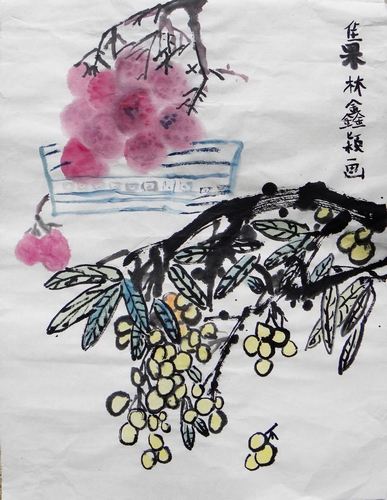 隹果林鑫颖画